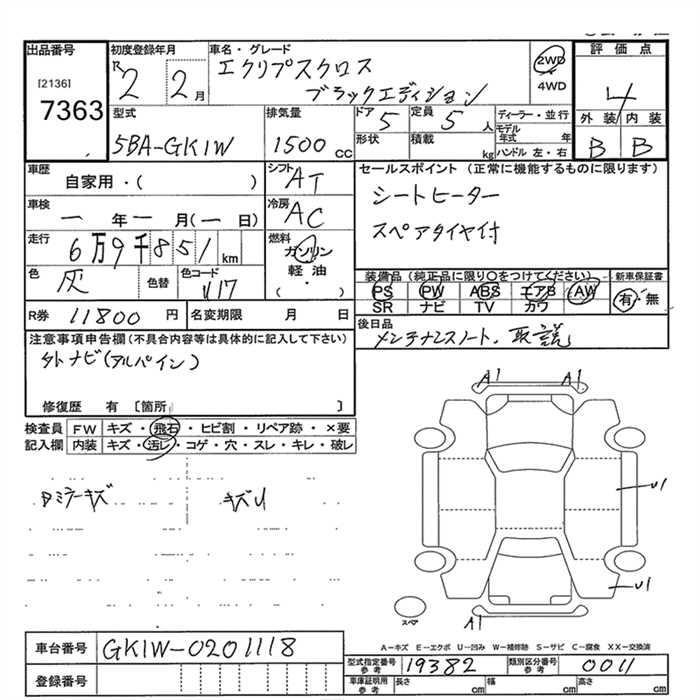 出品番号
[2136]
7363
初度登録年月
R2 2月
車名・グレード
エクリプスクロス
ブラックエディション
2WD
・
4WD
評価点
4
外装 内装
B B
型式
5BA-GK1W
排気量
1500 cc
ドア
5
定員
5 人
形状
積載
kg
ディーラー・並行
モデル年式 年
ハンドル 左・右
車歴
自家用・( )
シフト
AT
車検
一年一月(一日)
冷房
AC
走行
6万9千851km
燃料
ガソリン
軽油
・
( )
色
灰
色替
色コード
U17
R券 11800 円
名変期限 月 日
セールスポイント (正常に機能するものに限ります)
シートヒーター
スペアタイヤ付
装備品 (純正品に限り○をつけてください)
PS PW ABS エアB AW
SR ナビ TV カワ
新車保証書
有・無
後日品
メンテナンスノート、取説
注意事項申告欄(不具合内容等は具体的に記入して下さい)
外ナビ(アルパイン)
修復歴 有 [箇所 ]
検査員記入欄
FW キズ・飛石・ヒビ割・リペア跡・×要
内装 キズ・汚レ・コゲ・穴・スレ・キレ・破レ
ミラーキズ キズU
A1 A1
U1
U1
A1
スペア
A-キズ E-エクボ U-凹み W-補修跡 S-サビ C-腐食 XX-交換済
車台番号 GK1W-0201118
登録番号
型式指定番号 参考 19382
類別区分番号 参考 0011
車庫証明用 参考 長さ cm 幅 cm 高さ cm